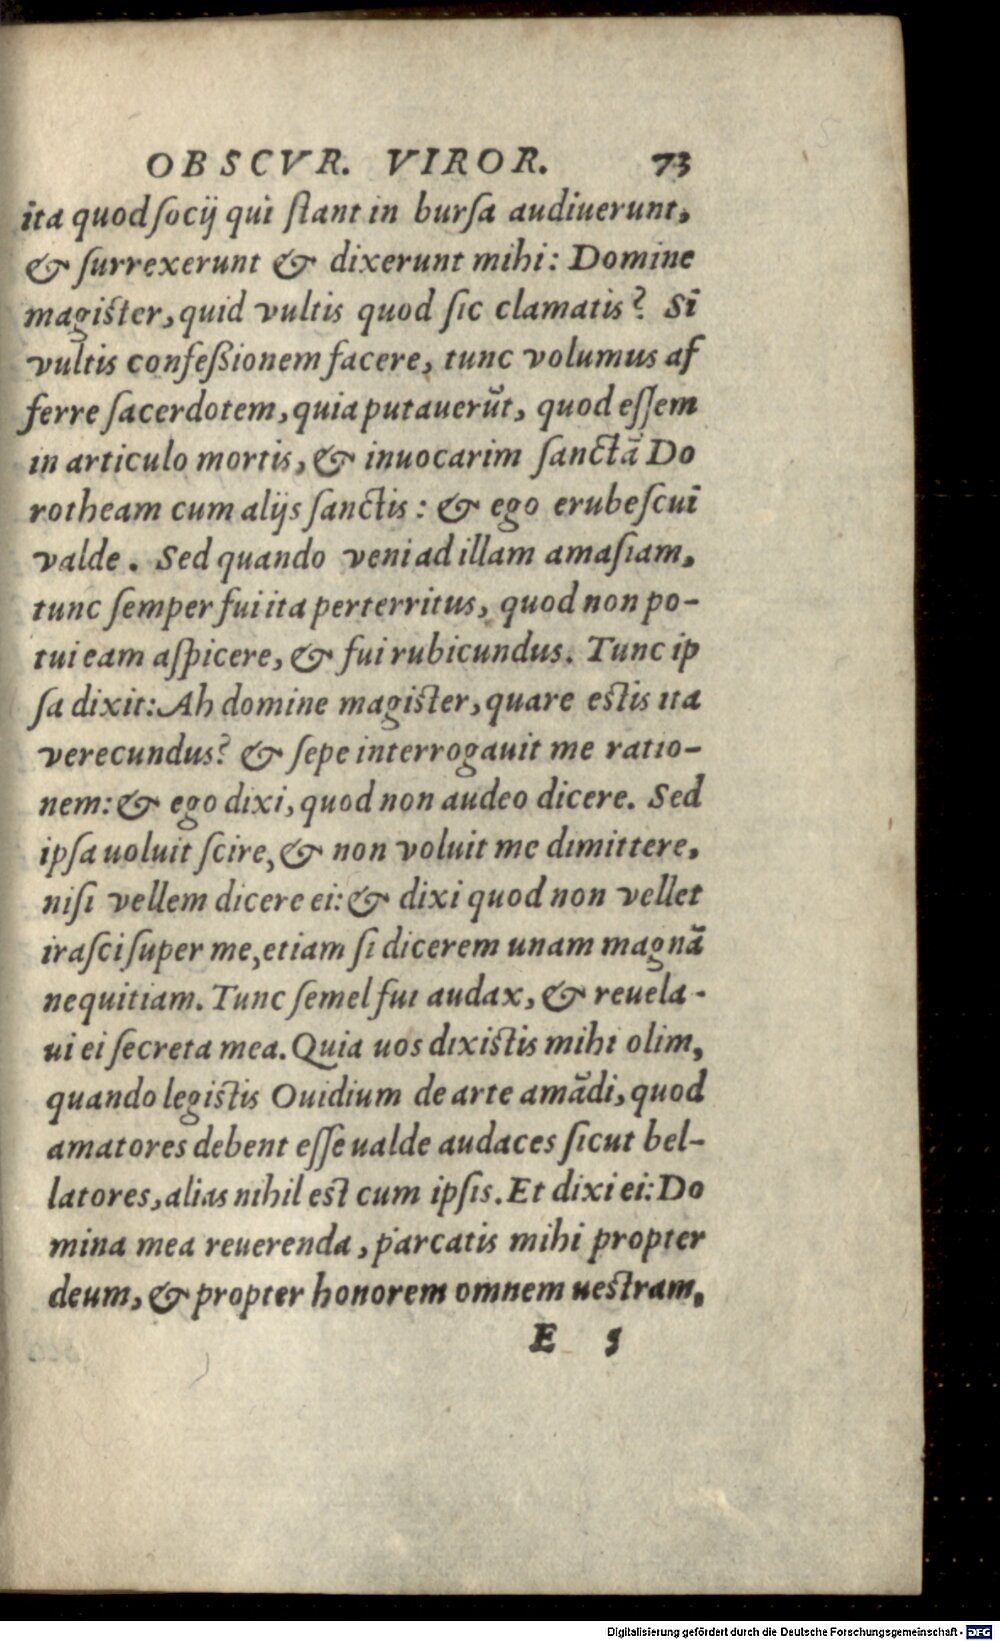 OBSCVR. VIROR. 73
ita quod ſocij qui ſtant in burſa audiuerunt,
& ſurrexerunt & dixerunt mihi: Domine
magiſter, quid vultis quod ſic clamatis? Si
vultis confeßionem facere, tunc volumus af
ferre ſacerdotem, quia putauerūt, quod eſſem
in articulo mortis, & inuocarim ſanctā Do
rotheam cum alijs ſanctis: & ego erubeſcui
valde. Sed quando veni ad illam amaſiam,
tunc ſemper fui ita perterritus, quod non po-
tui eam aſpicere, & fui rubicundus. Tunc ip
ſa dixit: Ah domine magiſter, quare eſtis ita
verecundus? & ſepe interrogauit me ratio-
nem: & ego dixi, quod non audeo dicere. Sed
ipſa uoluit ſcire, & non voluit me dimittere,
niſi vellem dicere ei: & dixi quod non vellet
iraſci ſuper me, etiam ſi dicerem unam magnā
nequitiam. Tunc ſemel fui audax, & reuela-
ui ei ſecreta mea. Quia uos dixiſtis mihi olim,
quando legiſtis Ouidium de arte amādi, quod
amatores debent eſſe ualde audaces ſicut bel-
latores, alias nihil eſt cum ipſis. Et dixi ei: Do
mina mea reuerenda, parcatis mihi propter
deum, & propter honorem omnem ueſtram,
E 5
Digitalisierung gefördert durch die Deutsche Forschungsgemeinschaft - DFG